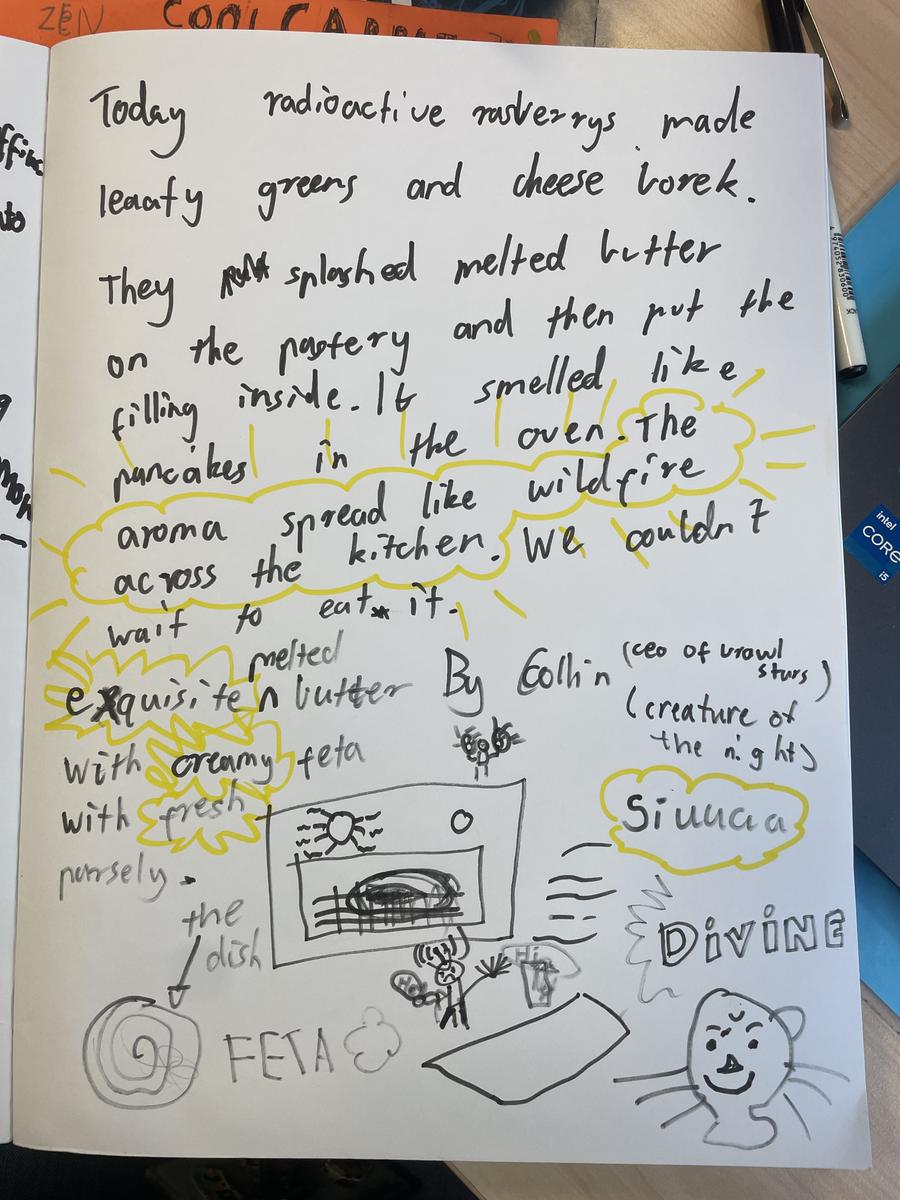 ZEN COOL
Today radioactive rasberrys made
leaafy greens and cheese borek.
They splashed melted butter
on the pastery and then put the
filling inside. It smelled like
pancakes in the oven. The
aroma spread like wildfire
across the kitchen. We couldn't
wait to eat it.
By Collin (ceo of brawl
stars)
(creature of
the night)
melted
exquisite butter
with creamy feta
with fresh
parsely.
Siuuuaa
the
dish
DiViNE
Hi
FETA
intel
CORE
i5